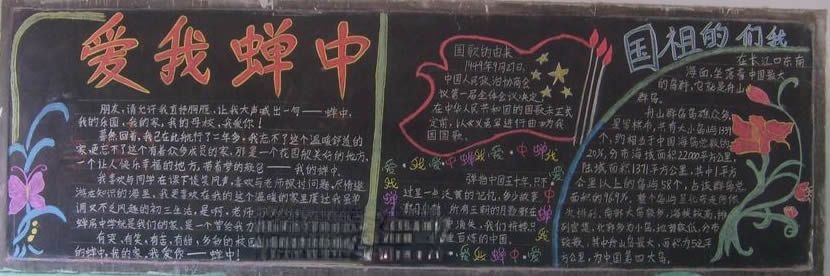 爱我蝉中
朋友,请允许我直抒胸臆,让我大声喊出一句——蝉中,
我的乐园,我的家,我的母校,我爱你!
蓦然回首,我已在此航行了二年多,我忘不了这个温暖舒适的
家,更忘不了这个有着众多成员的家,那是一个花园般美好的地方,
一个让人快乐幸福的地方,带着梦的歌包——我的蝉中。
我喜欢与同学在课下谈笑风声,喜欢与老师探讨问题,尽情遨
游在知识的海里,我更喜欢在我的这个温暖的家里度过有品
调又不乏风趣的初三生活,是啊,老师
蝉房中学就是我们的家,是一个曾给我力
有哭,有笑,有苦,有甜,多彩的校园
的蝉中,我的家,我爱你——蝉中!
国歌的由来
1949年9月27日,
中国人民政治协商会
议第一届全体会议决定
在中华人民共和国的国歌未正式
定前,以义勇军进行曲为我
国国歌。
我爱蝉中
弹指中国五十年,只不
过是一些泛黄的记忆,多少故事
所有三朝的月影都在
消失,我们拆掉
百炼的中国。
我爱蝉中
国祖的们我
在长江口东南
海面,坐落着中国最大
的岛群,它就是舟山
群岛。
舟山群岛岛礁众多,
星罗棋布,共有大小岛屿1339
个,约相当于中国海岛总数的
20%,分布海域面积22000平方公里,
陆域面积1371平方公里。其中1平方
公里以上的岛屿58个,占该群岛总
面积的96.9%。整个岛呈北向走向依
次排列,南部大岛较多,海拔较高,排
列密集,北部多为小岛,地势较低,分布
较散,其中舟山岛最大,面积为502平
方公里,为中国第四大岛。